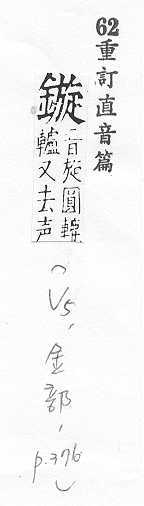 62重訂直音篇
鏇
音旋圓轆
轤又去声
(V5,金部,p.376)